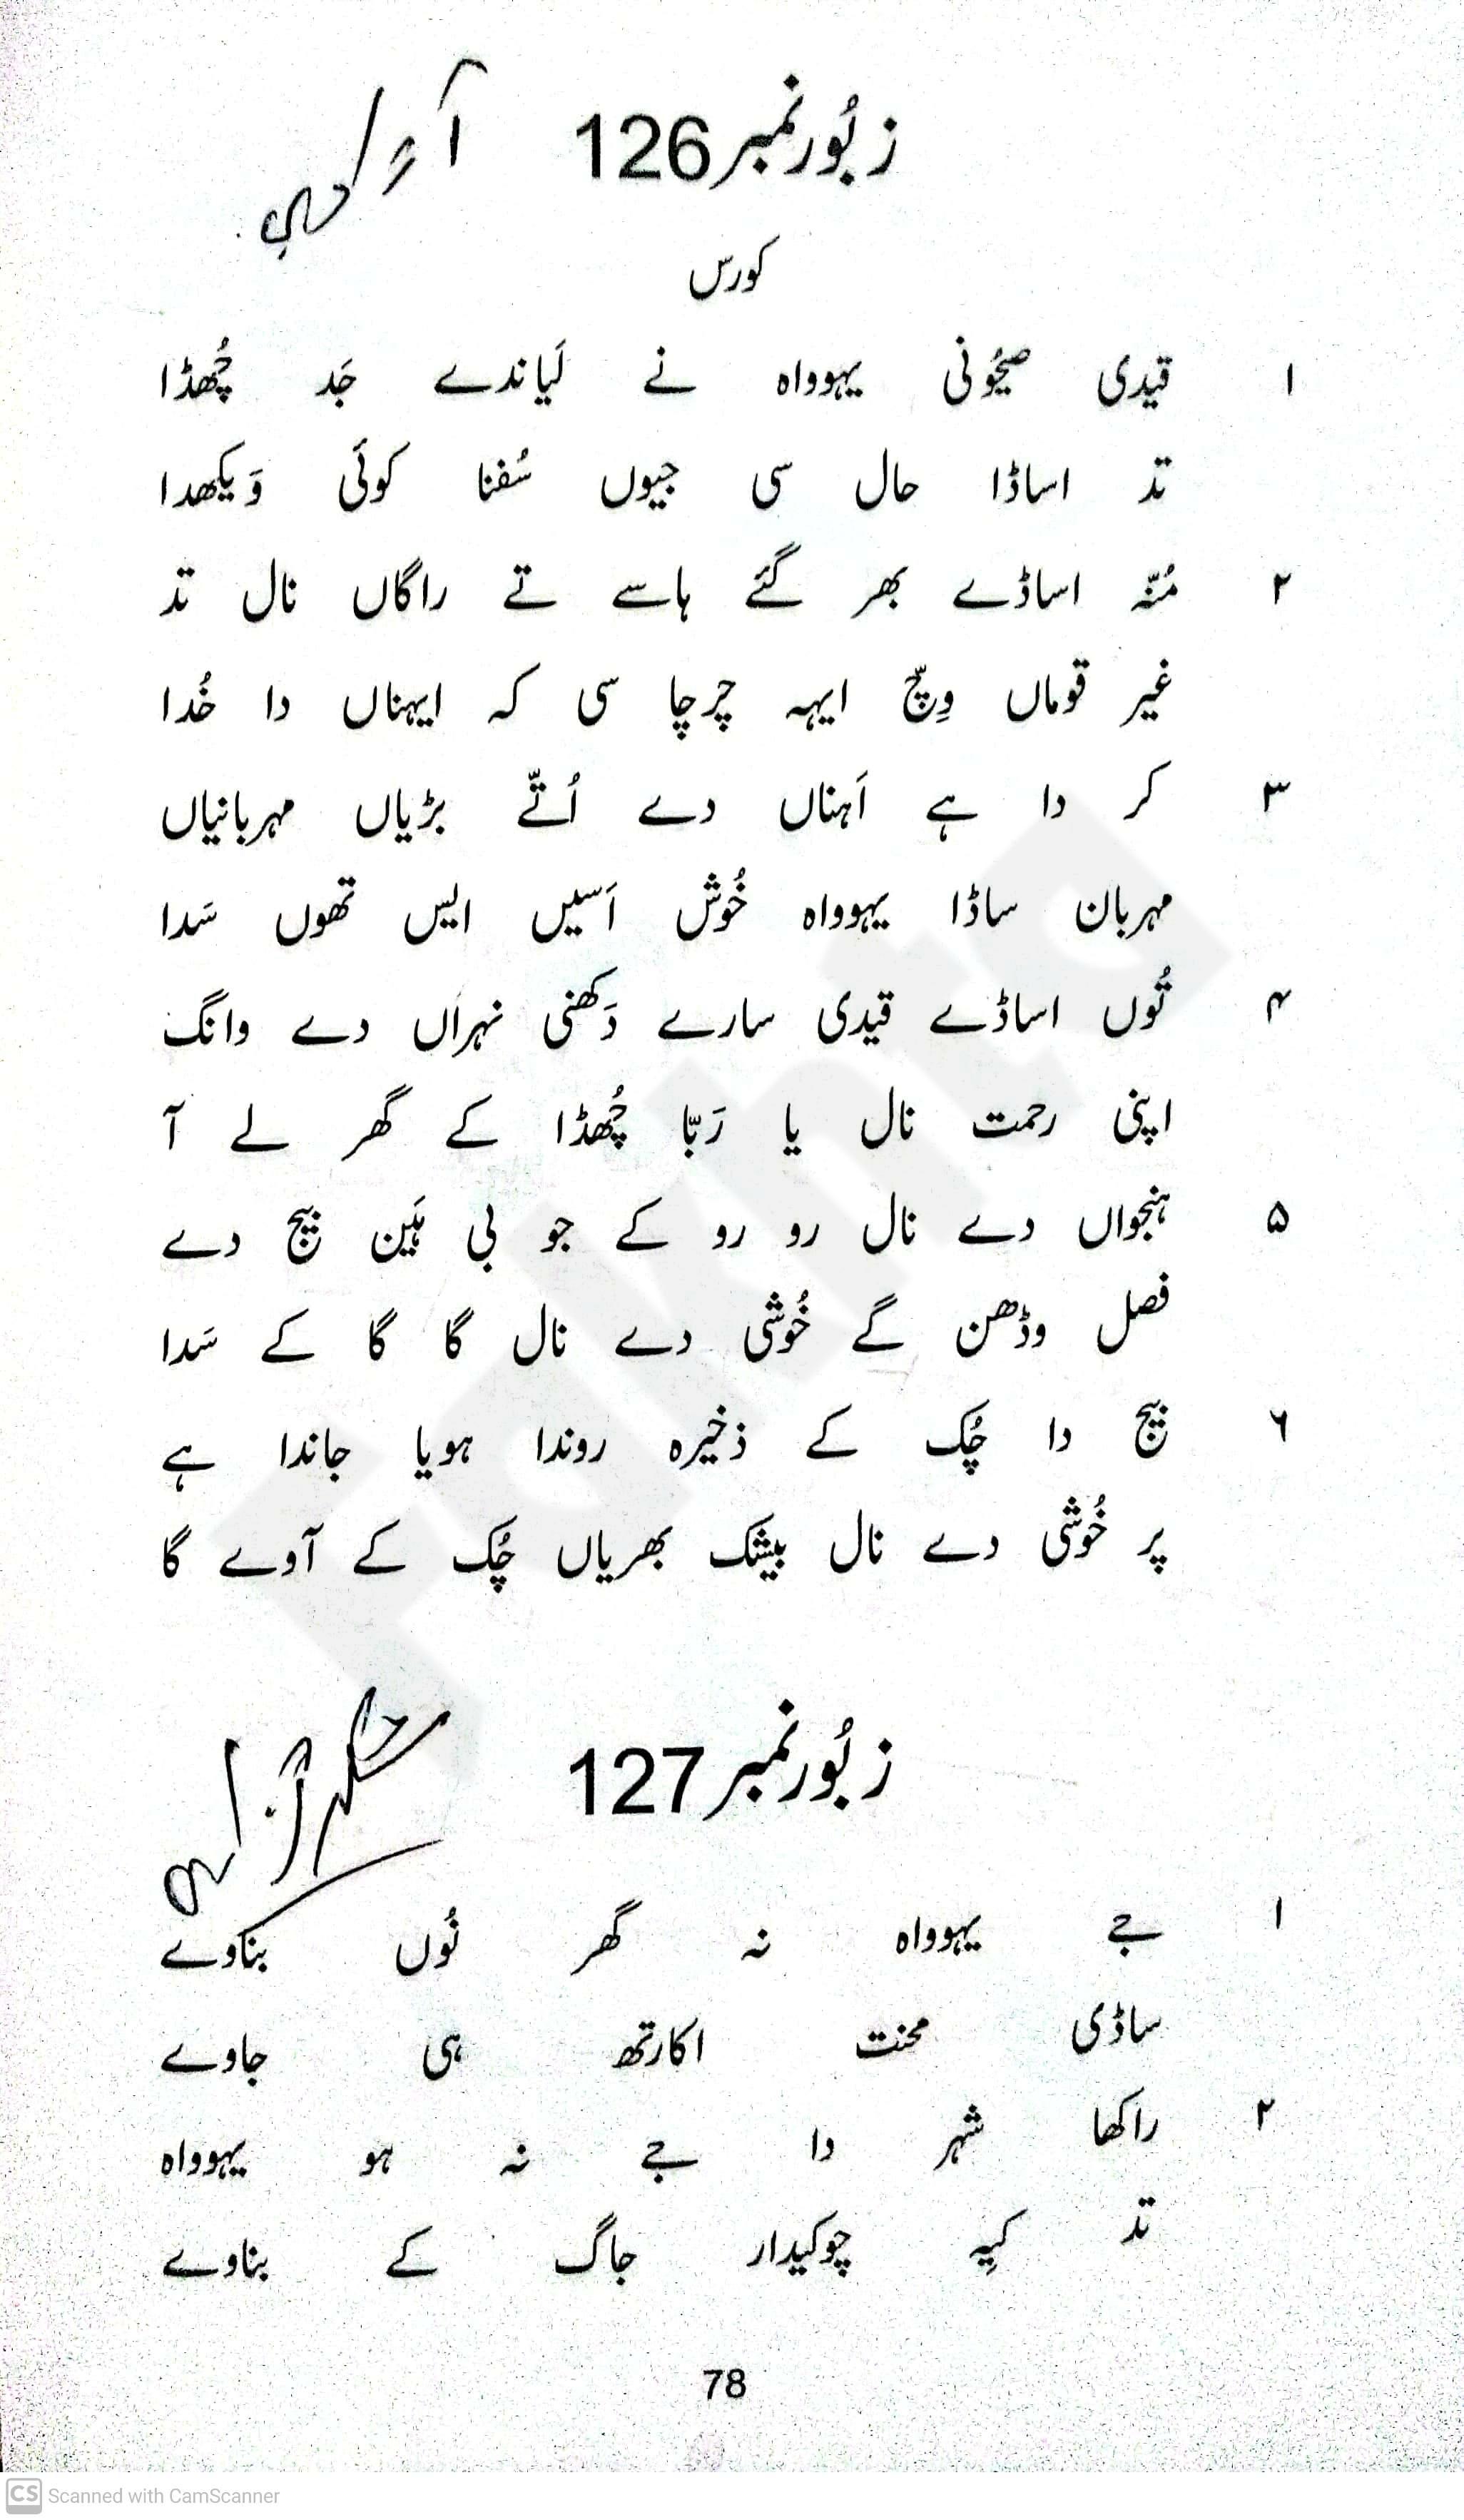 زبُور نمبر 126
کورس
۱ قیدی صیحُونی یہوواہ نے لَیاندے جَد چُھڈا
تد اساڈا حال سی جیوں سُفنا کوئی وَیکھدا
۲ مُنّہ اساڈے بھر گئے ہاسے تے راگاں نال تد
غیر قوماں وِچّ ایہہ چرچا سی کہ ایہناں دا خُدا
۳ کر دا ہے اَہناں دے اُتّے بڑیاں مہربانیاں
مہربان ساڈا یہوواہ خُوش اَسیں ایس تھوں سَدا
۴ تُوں اساڈے قیدی سارے دَکھنی نہراں دے وانگ
اپنی رحمت نال یا رَبّا چُھڈا کے گھر لے آ
۵ ہنجواں دے نال رو رو کے جو بی ہَین بیج دے
فصل وڈھن گے خُوشی دے نال گا گا کے سَدا
۶ بیج دا چُک کے ذخیرہ روندا ہویا جاندا ہے
پر خُوشی دے نال بیشک بھریاں چُک کے آوے گا
زبُور نمبر 127
۱ جے یہوواہ نہ گھر نُوں بناوے
ساڈی محنت اکارتھ ہی جاوے
۲ راکھا شہر دا جے نہ ہو یہوواہ
تد کِیہ چوکیدار جاگ کے بناوے
78
CS Scanned with CamScanner